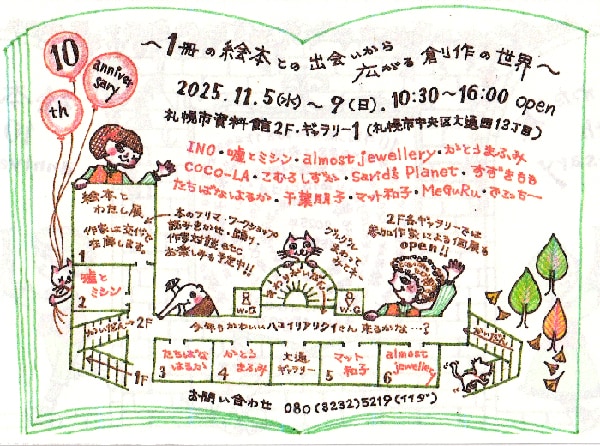 10
th
anniversary
～1冊の絵本との出会いから
広がる創作の世界～
2025.11.5(水)～9(日).10:30～16:00 open
札幌市資料館2F・ギャラリー1 (札幌市中央区大通西13丁目)
INO・嘘とミシン・almost jewellery・かとうまふみ
COCO-LA・こむろしずか・Sand's Planet・すずきもも
たちばなはるか・千葉朋子・マット和子・MeguRu・
絵本と
わたし展
作家は交代で
在廊します
1
本のフリマ・ワークショップ
読みきかせ・
作家対談 etc
お楽しみも予定中!!
2F各ギャラリーでは
参加作家による個展も
open!!
嘘と
ミシン
2
W.C
W.C
かいだん→2F
今年もかわいいハエイリアリクイさん 来るかな…?
かいだん
1F
たちばな
はるか
3
かとう
まふみ
4
大通
ギャラリー
マット
和子
5
almost
jewellery
6
お問い合わせ 080(8232)5219(イイダ)